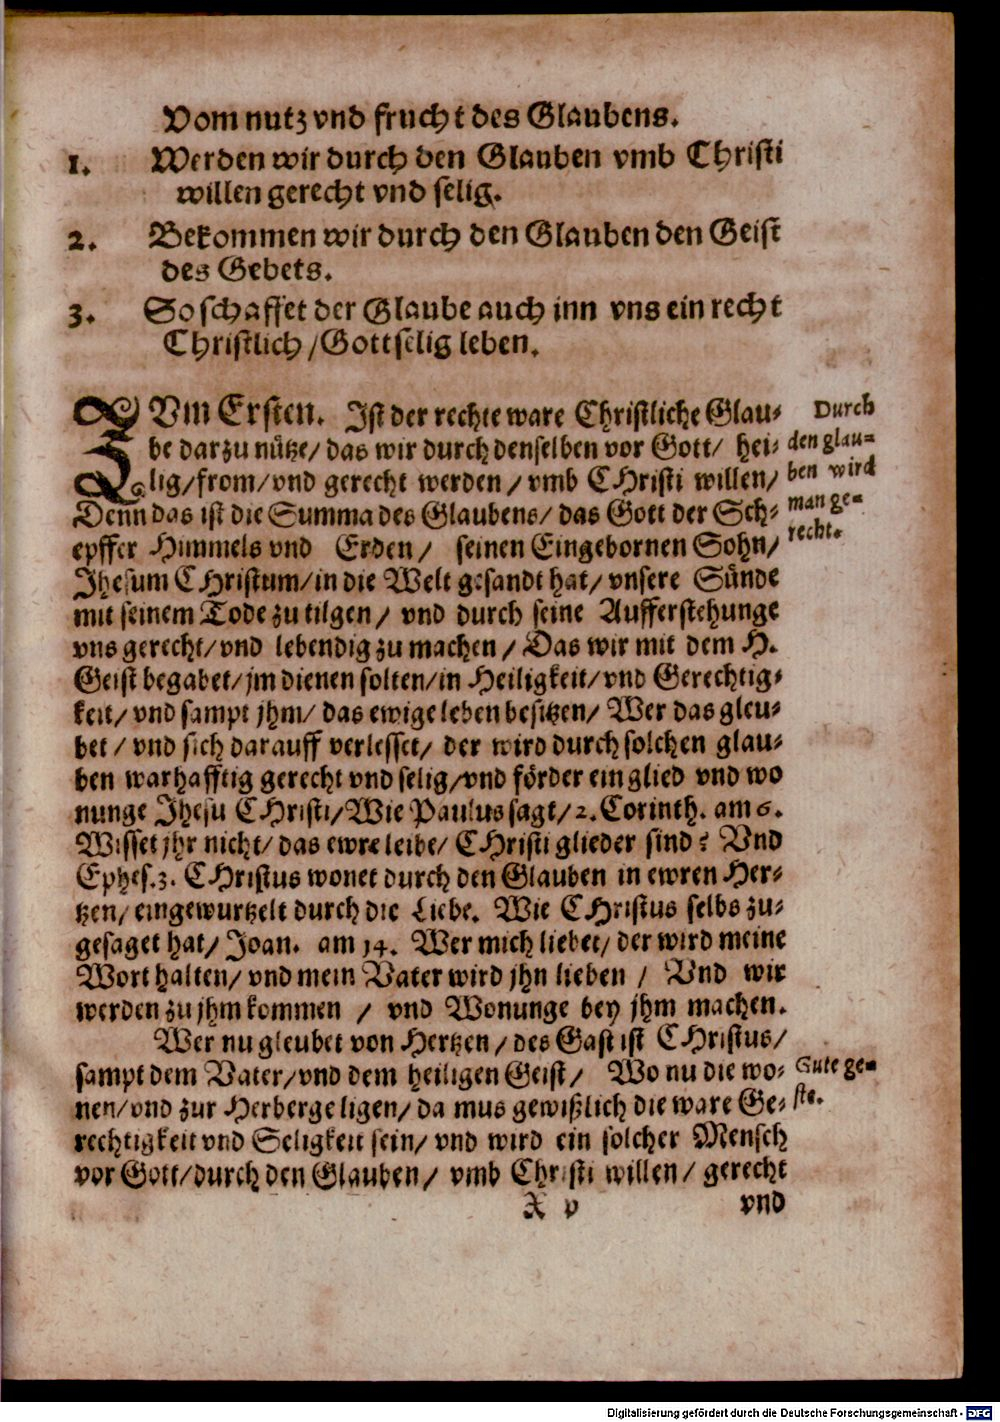 Vom nutz vnd frucht des Glaubens.
1. Werden wir durch den Glauben vmb Christi
willen gerecht vnd selig.
2. Bekommen wir durch den Glauben den Geist
des Gebets.
3. So schaffet der Glaube auch inn vns ein recht
Christlich/Gottselig leben.
ZVm Ersten. Ist der rechte ware Christliche Glau-
be darzu nütze/ das wir durch denselben vor Gott/ hei-
lig/from/vnd gerecht werden/ vmb CHristi willen/
Denn das ist die Summa des Glaubens/ das Gott der Sch-
epffer Himmels vnd Erden/ seinen Eingebornen Sohn/
Jhesum CHristum/in die Welt gesandt hat/ vnsere Sünde
mit seinem Tode zu tilgen/ vnd durch seine Aufferstehunge
vns gerecht/vnd lebendig zu machen/ Das wir mit dem H.
Geist begabet/jm dienen solten/in Heiligkeit/vnd Gerechtig-
keit/ vnd sampt jhm/ das ewige leben besitzen/ Wer das gleu-
bet/ vnd sich darauff verlesset/ der wird durch solchen glau-
ben warhafftig gerecht vnd selig/vnd förder ein glied vnd wo
nunge Jhesu CHristi/Wie Paulus sagt/2. Corinth. am 6.
Wisset jhr nicht/ das ewre leibe/ CHristi glieder sind? Vnd
Ephes.3. CHristus wonet durch den Glauben in ewren Her-
tzen/ eingewurtzelt durch die Liebe. Wie CHristus selbs zu-
gesaget hat/ Joan. am 14. Wer mich liebet/ der wird meine
Wort halten/ vnd mein Vater wird jhn lieben / Vnd wir
werden zu jhm kommen / vnd Wonunge bey jhm machen.
Wer nu gleubet von Hertzen/ des Gast ist CHristus/
sampt dem Vater/vnd dem heiligen Geist/ Wo nu die wo-
nen/vnd zur Herberge ligen/ da mus gewißlich die ware Ge-
rechtigkeit vnd Seligkeit sein/ vnd wird ein solcher Mensch
vor Gott/durch den Glauben/ vmb Christi willen/ gerecht
X v vnd
Durch
den glau-
ben wird
man ge-
recht.
Gute ge-
ste.
Digitalisierung gefördert durch die Deutsche Forschungsgemeinschaft - DFG